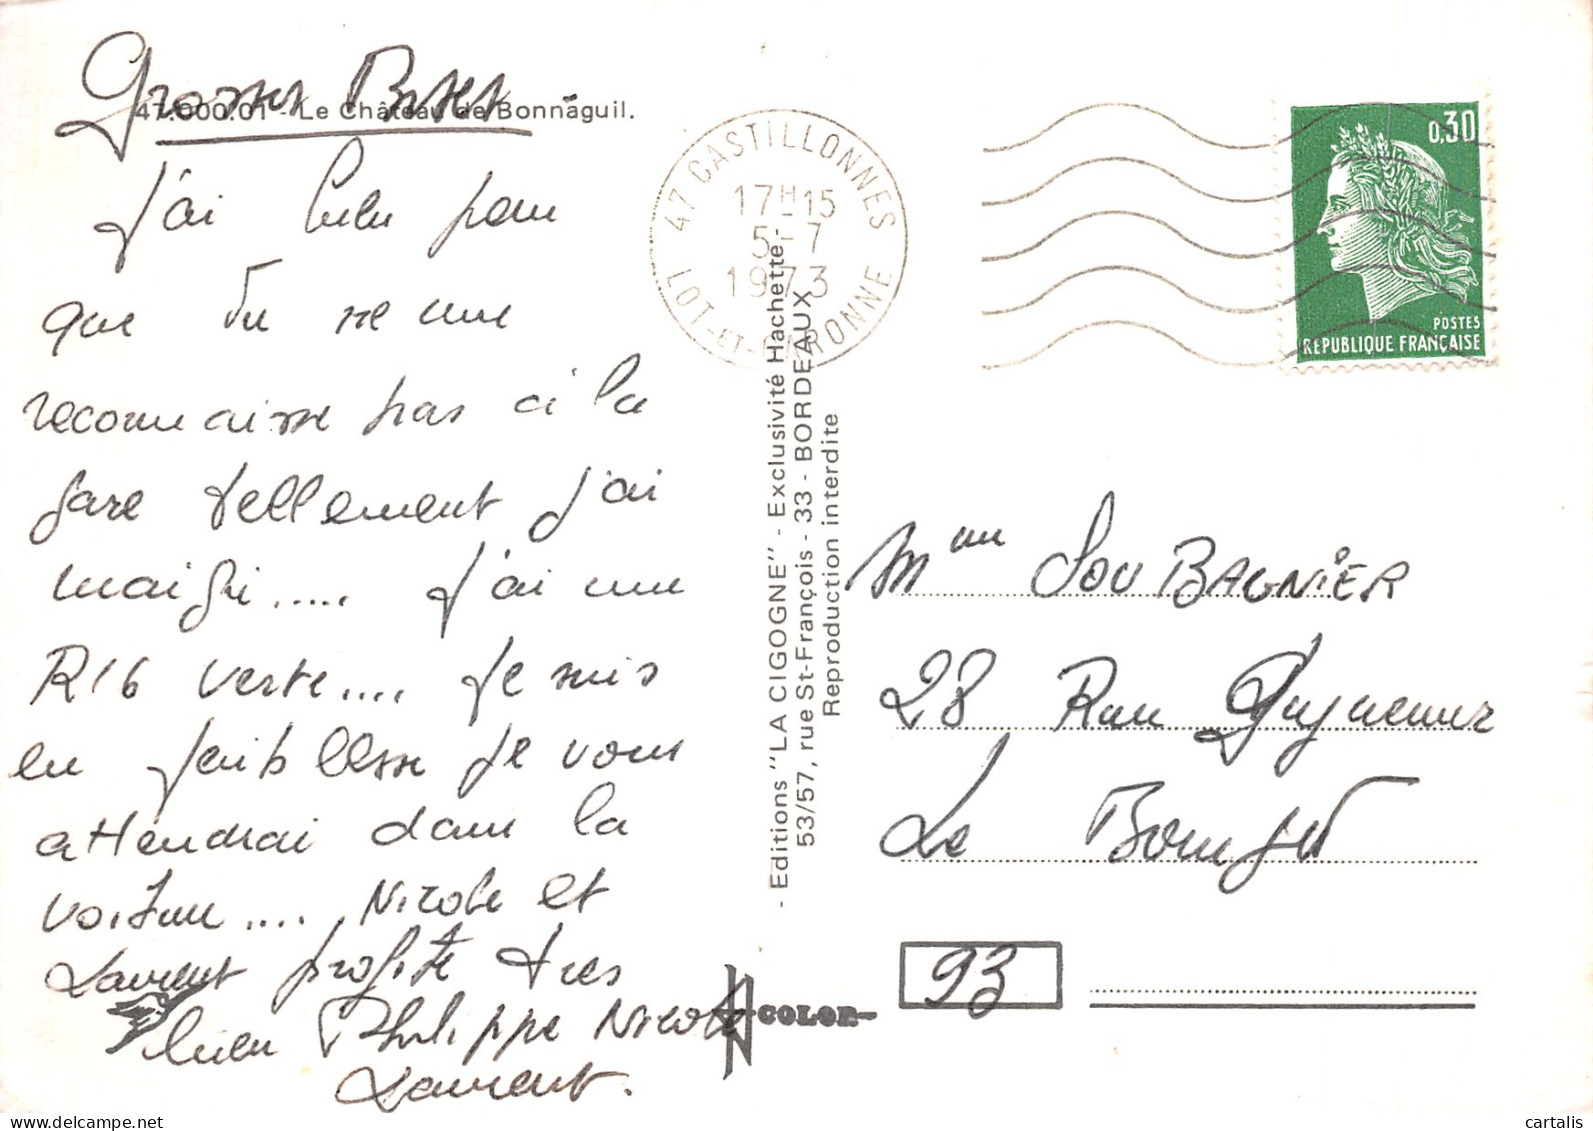 Grosses Bises
47.000.01 - Le Château de Bonnaguil.
J'ai bien peur
que Tu ne me
reconnaisse pas à la
gare tellement j'ai
maigri..... j'ai une
R16 verte.... Je suis
en faiblesse je vous
attendrai dans la
voiture.... Nicole et
Laurent profite tres
bien Philippe Nicole
Laurent.
- Editions "LA CIGOGNE" - Exclusivité Hachette -
53/57, rue St-François - 33 - BORDEAUX
Reproduction interdite
COLOR
47 CASTILLONNES
17H15
5-7
1973
LOT-ET-GARONNE
0,30
POSTES
REPUBLIQUE FRANÇAISE
Mme SOUBAGNIER
28 Rue Guynemer
Le Bourget
93
delcampe.net
cartalis